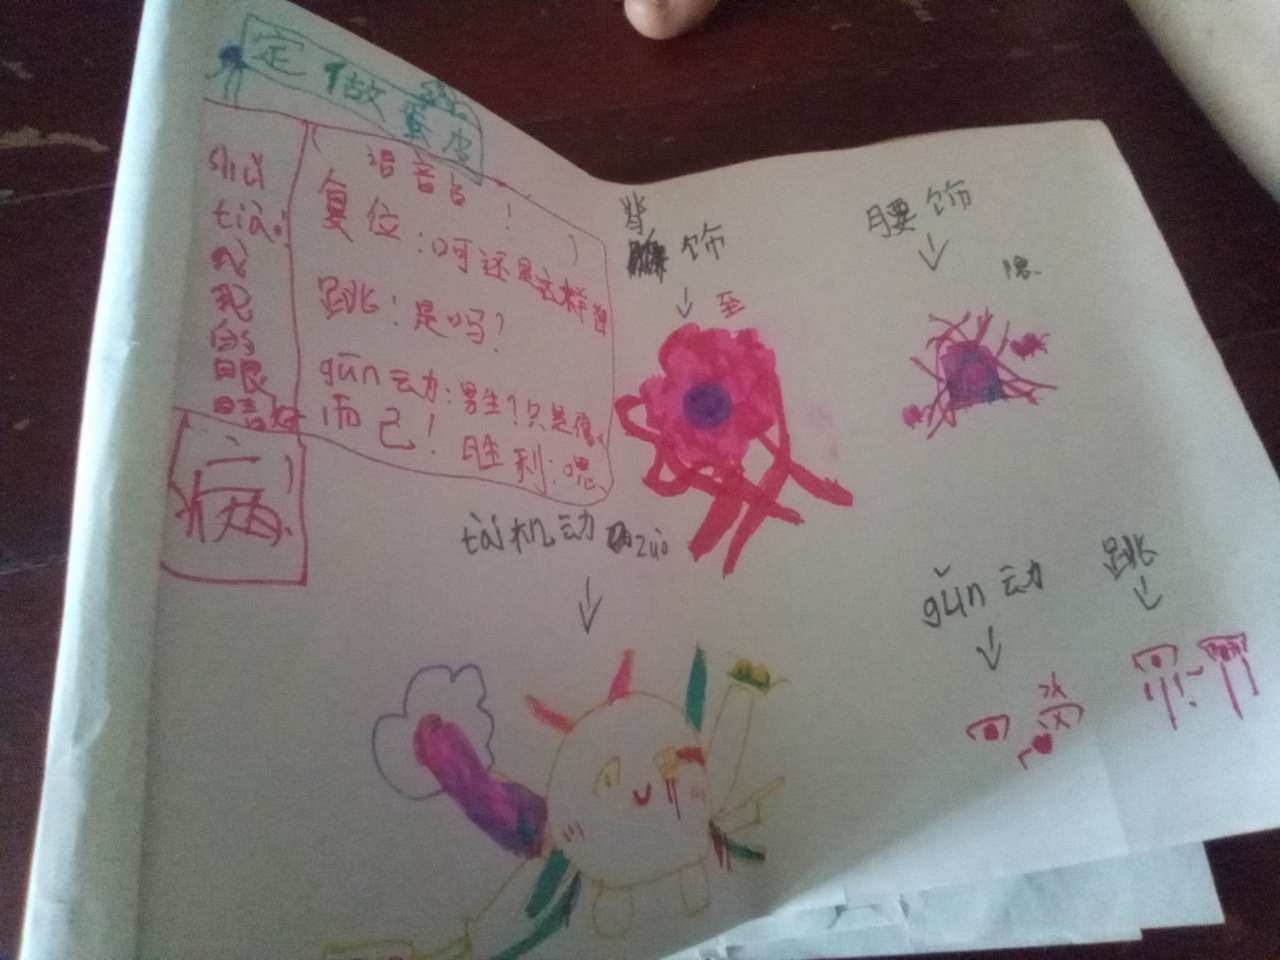 定做蛋皮
shuí
tiào
我
现
的
眼
睛好
病
语音台!
复位:呵还是这样弹
跳:是吗?
gǔn动:男生?只是像
而已!胜利:嗯
背饰
至
腰饰
tài机动zuò
gǔn动
跳